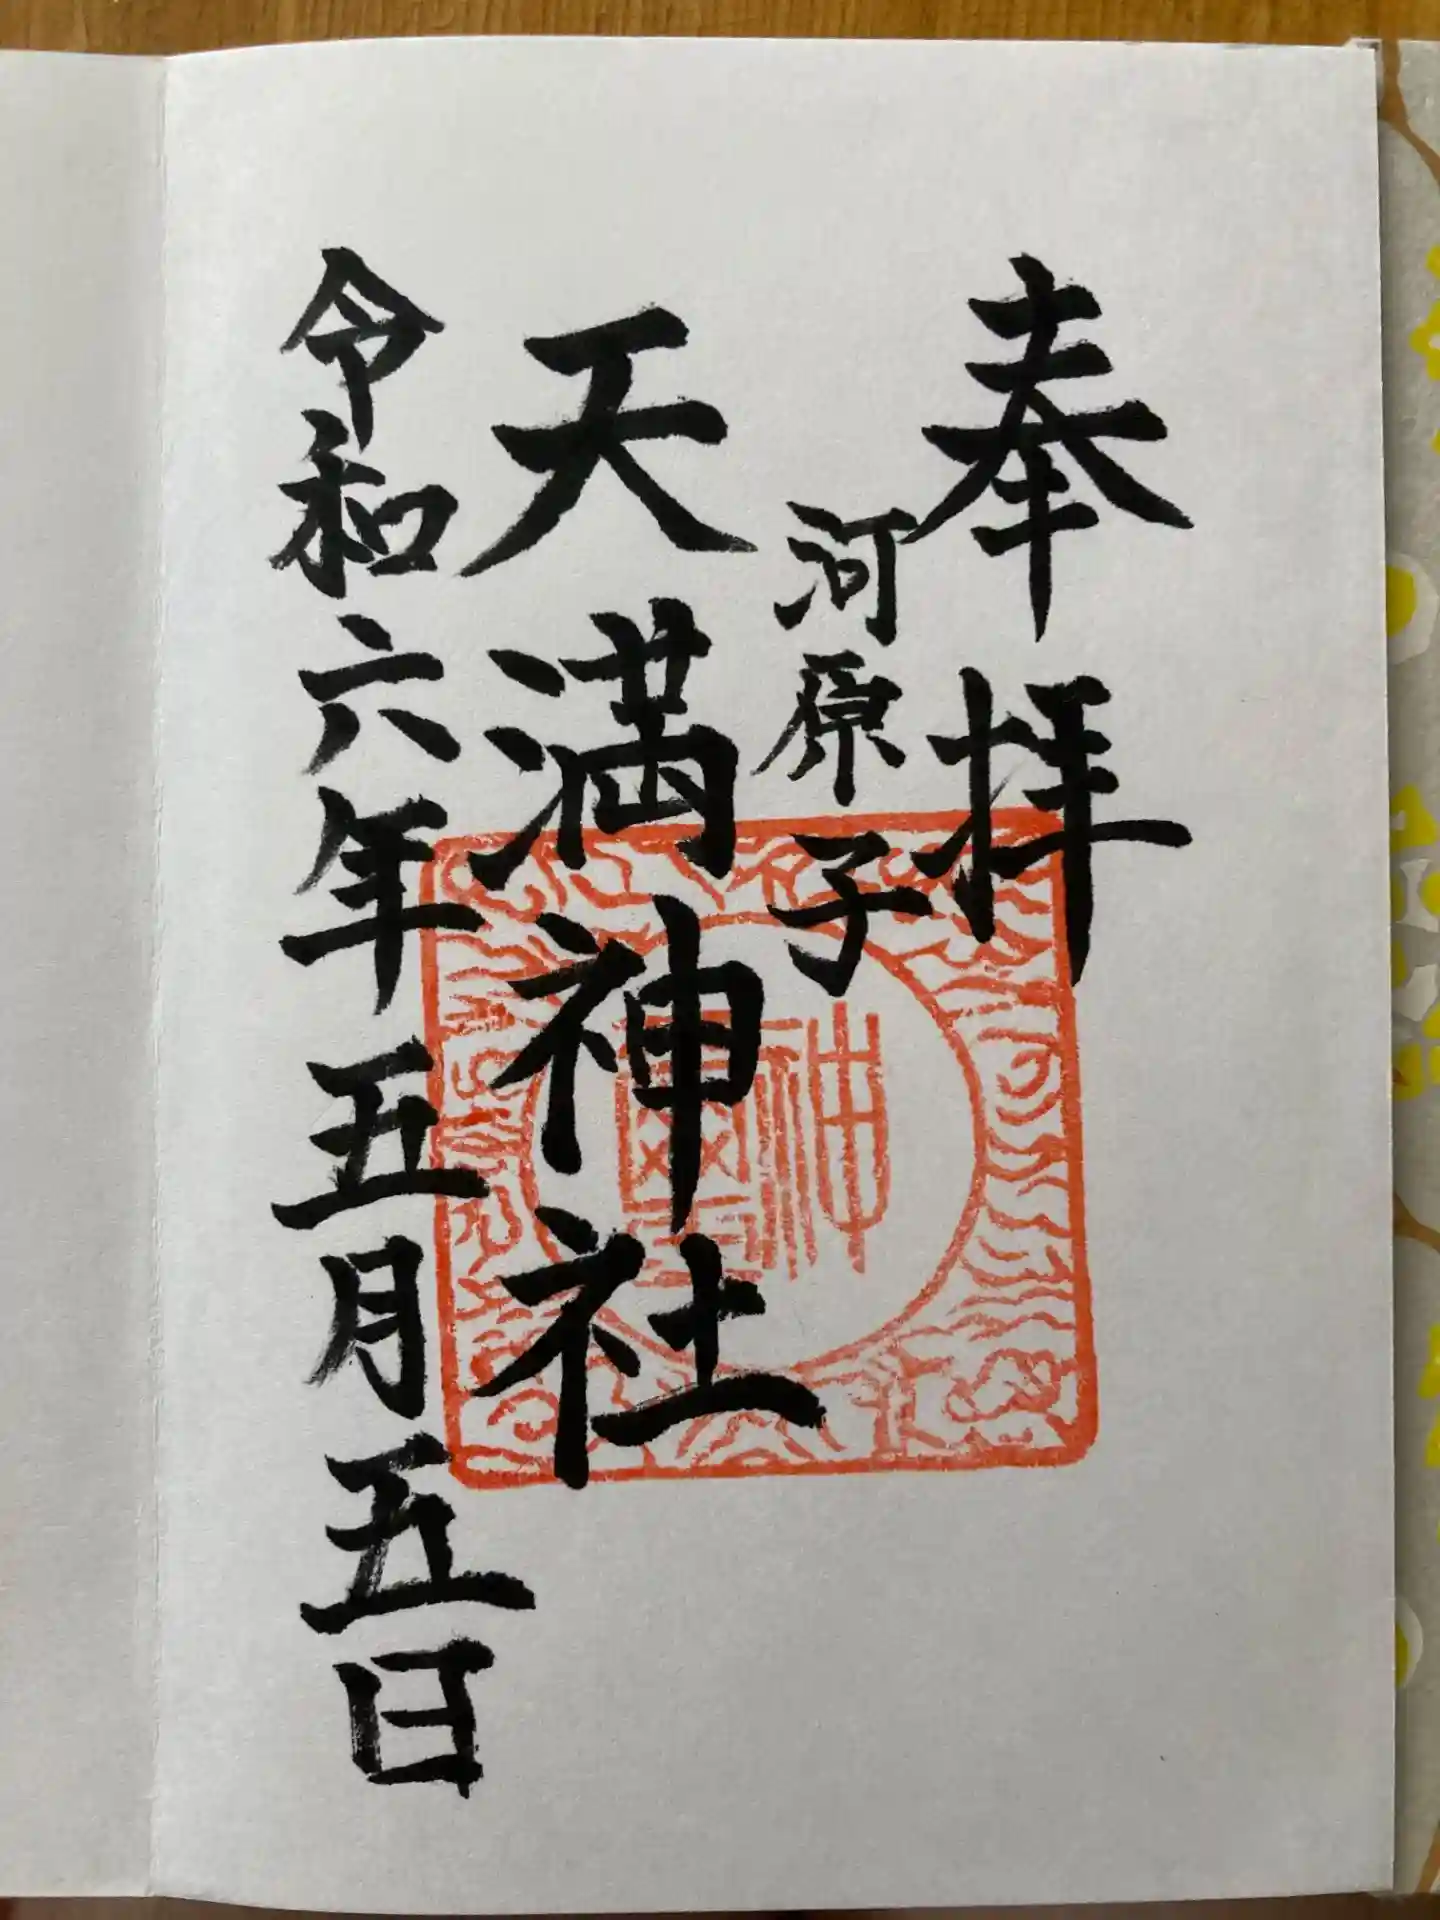 奉拝
河原子
天満神社
令和六年五月五日